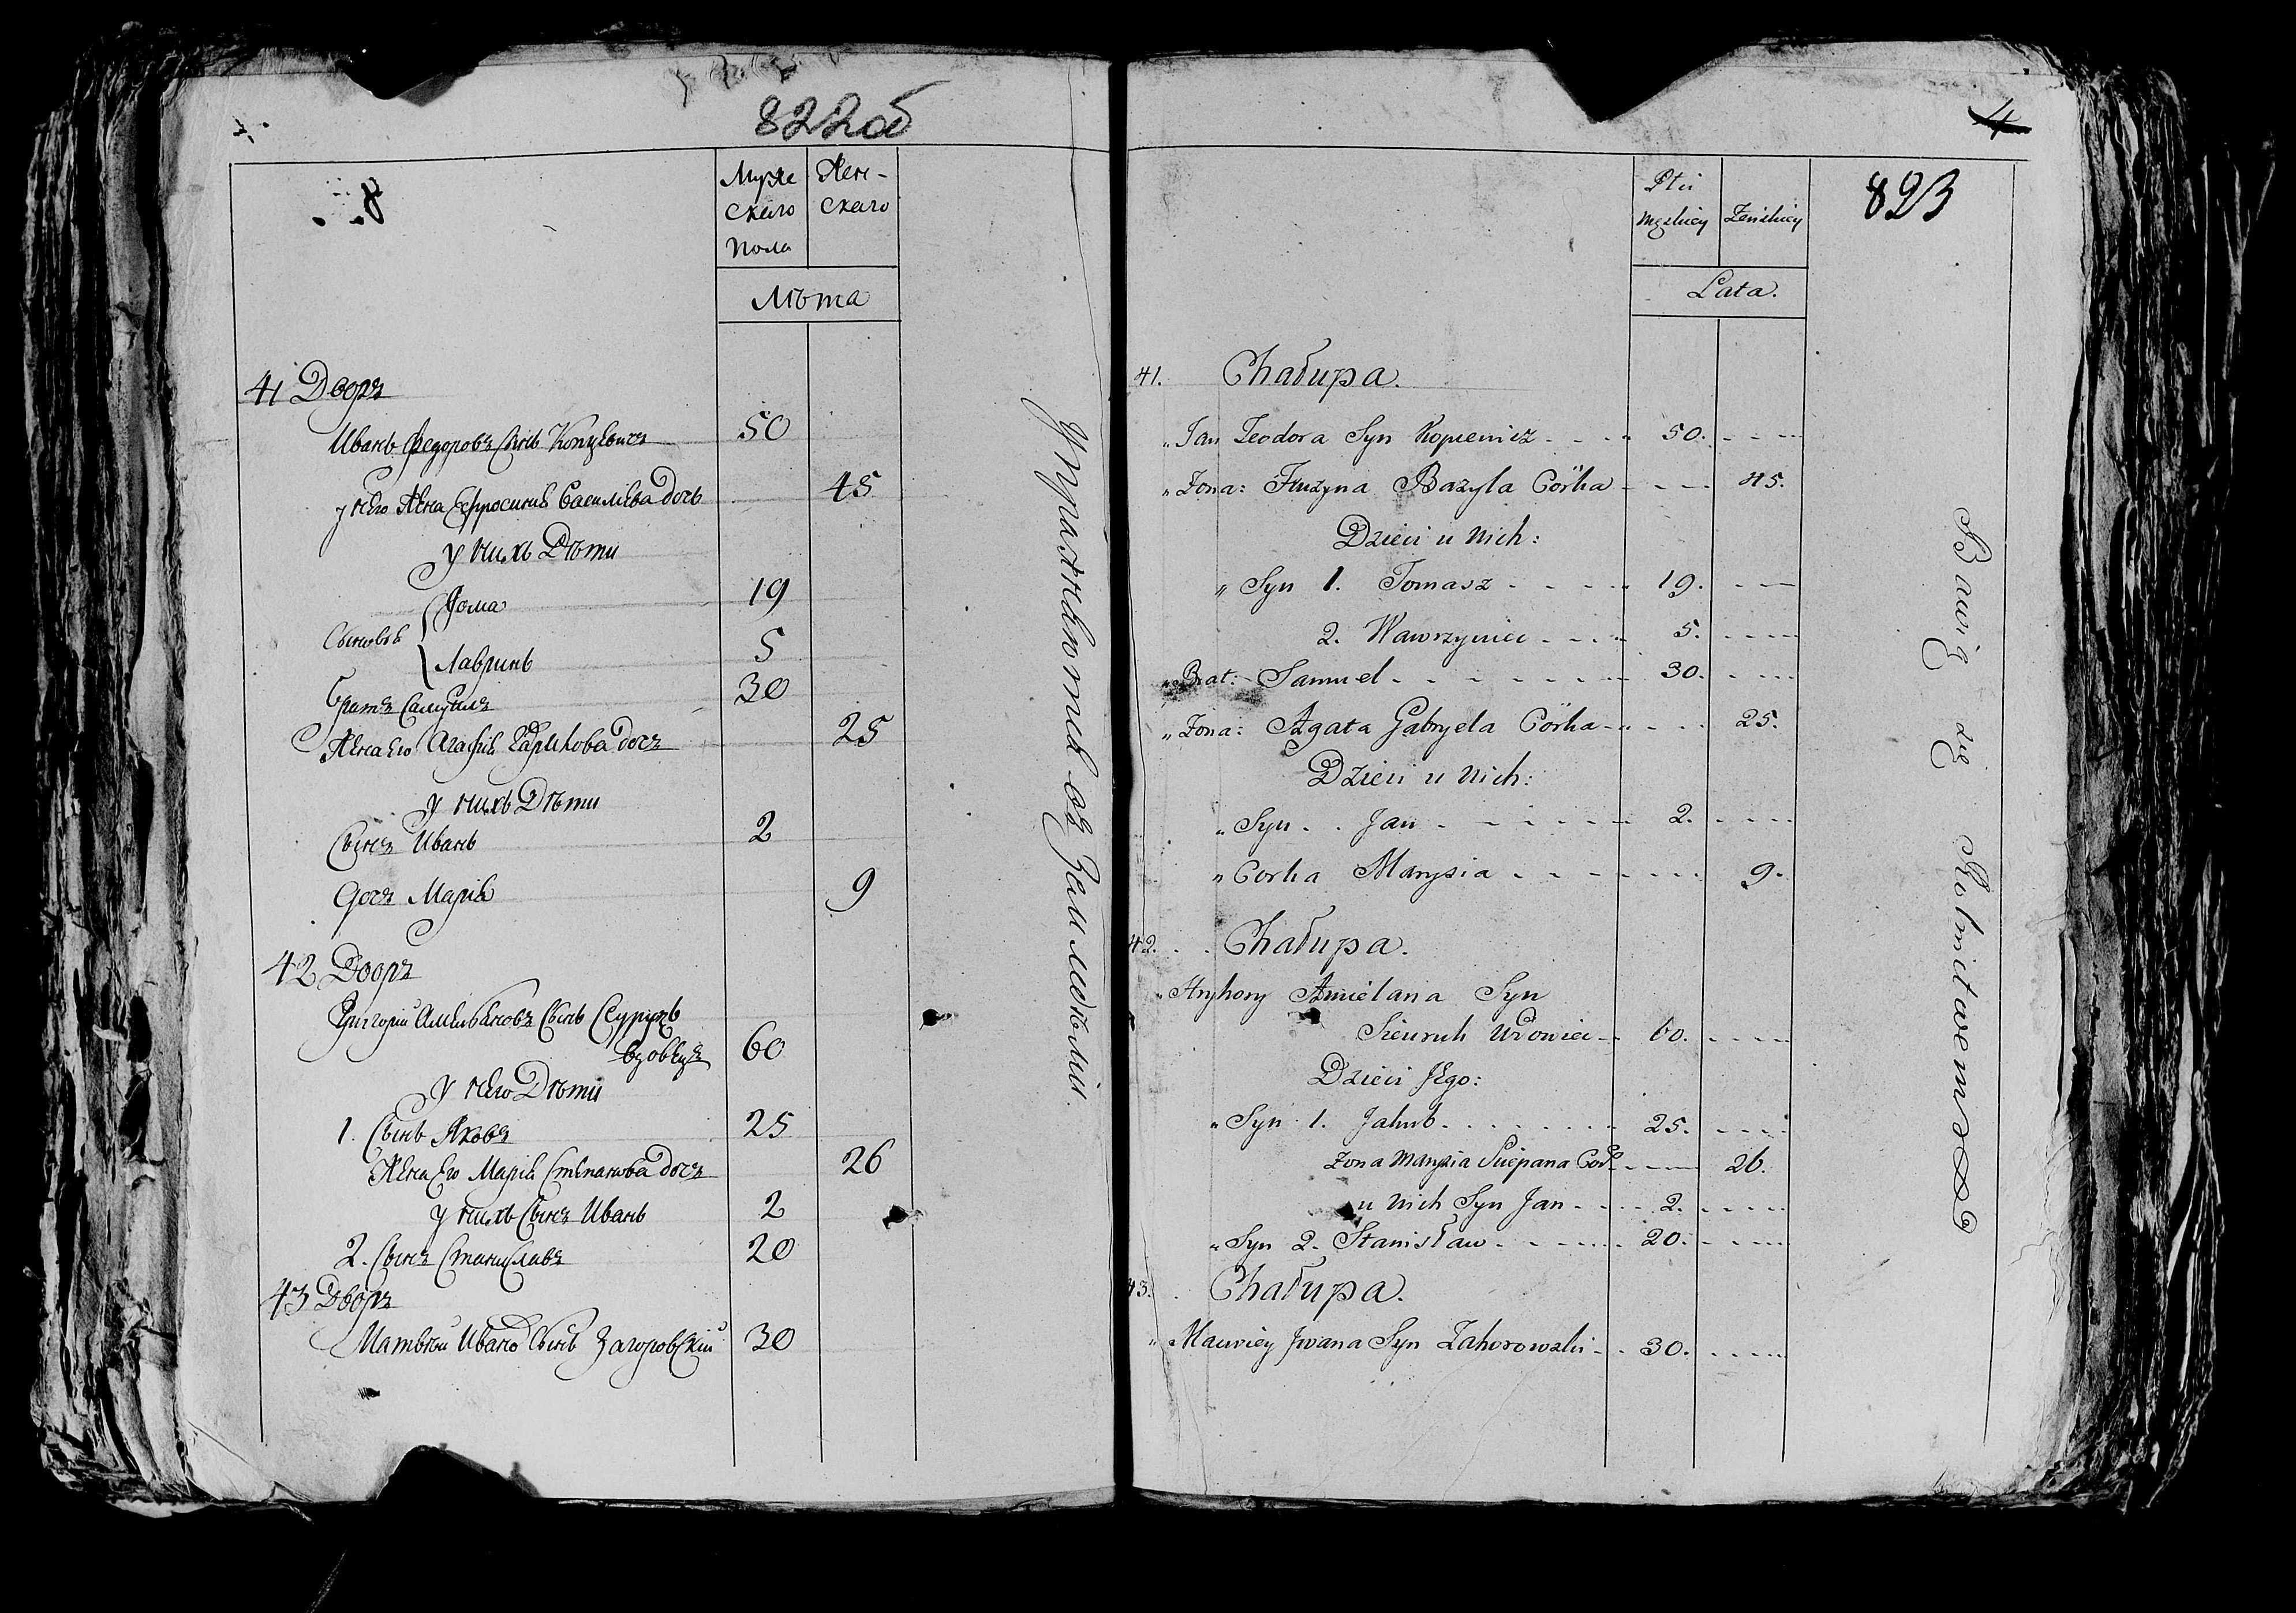 822об
8.
Муже Жен-
скаго скаго
пола
Лѣта
41 Дворъ
Иванъ Федоровъ Сынъ Копцевичъ 50
у него Жена Ефросинiя Васильева дочь 45
У нихъ Дѣти
Сыновья
Фома 19
Лавринъ 5
братъ Самуилъ 30
Жена Его Агафiя дочь 25
У нихъ Дѣти
Сынъ Иванъ 2
Дочь Марiя 9
42 Дворъ
Григорiй Сынъ
вдовецъ 60
У него Дѣти
1. Сынъ Яковъ 25
Жена Его Марiя Степанова дочь 26
У нихъ Сынъ Иванъ 2
2. Сынъ Станиславъ 20
43 Дворъ
Матвѣй Ивано Сынъ Загоровскiй 30
Упражняются въ Земледѣлiи.
4
823
Płci
Męzkiey Zeńskiey
Lata.
41. Chałupa.
„ Jan Teodora Syn 50.
„ Zona: Fruzyna Bazyla Córka 45.
Dzieci u Nich:
„ Syn 1. Tomasz 19.
2. Wawrzyniec 5.
„ Brat: Samuel 30.
„ Zona: Agata Gabryela Córka 25.
Dzieci u Nich:
„ Syn Jan 2.
„ Corka Marysia 9.
42. Chałupa.
„ Hryhory Syn
Wdowiec 60.
Dzieci Jego:
„ Syn 1. Jakub 25.
Zona Marysia Sciepana Cor 26.
u Nich Syn Jan 2.
„ Syn 2. Stanisław 20.
43. Chałupa.
„ Maciey Jwana Syn Zahorowski 30.
Bawią się Rolnictwem